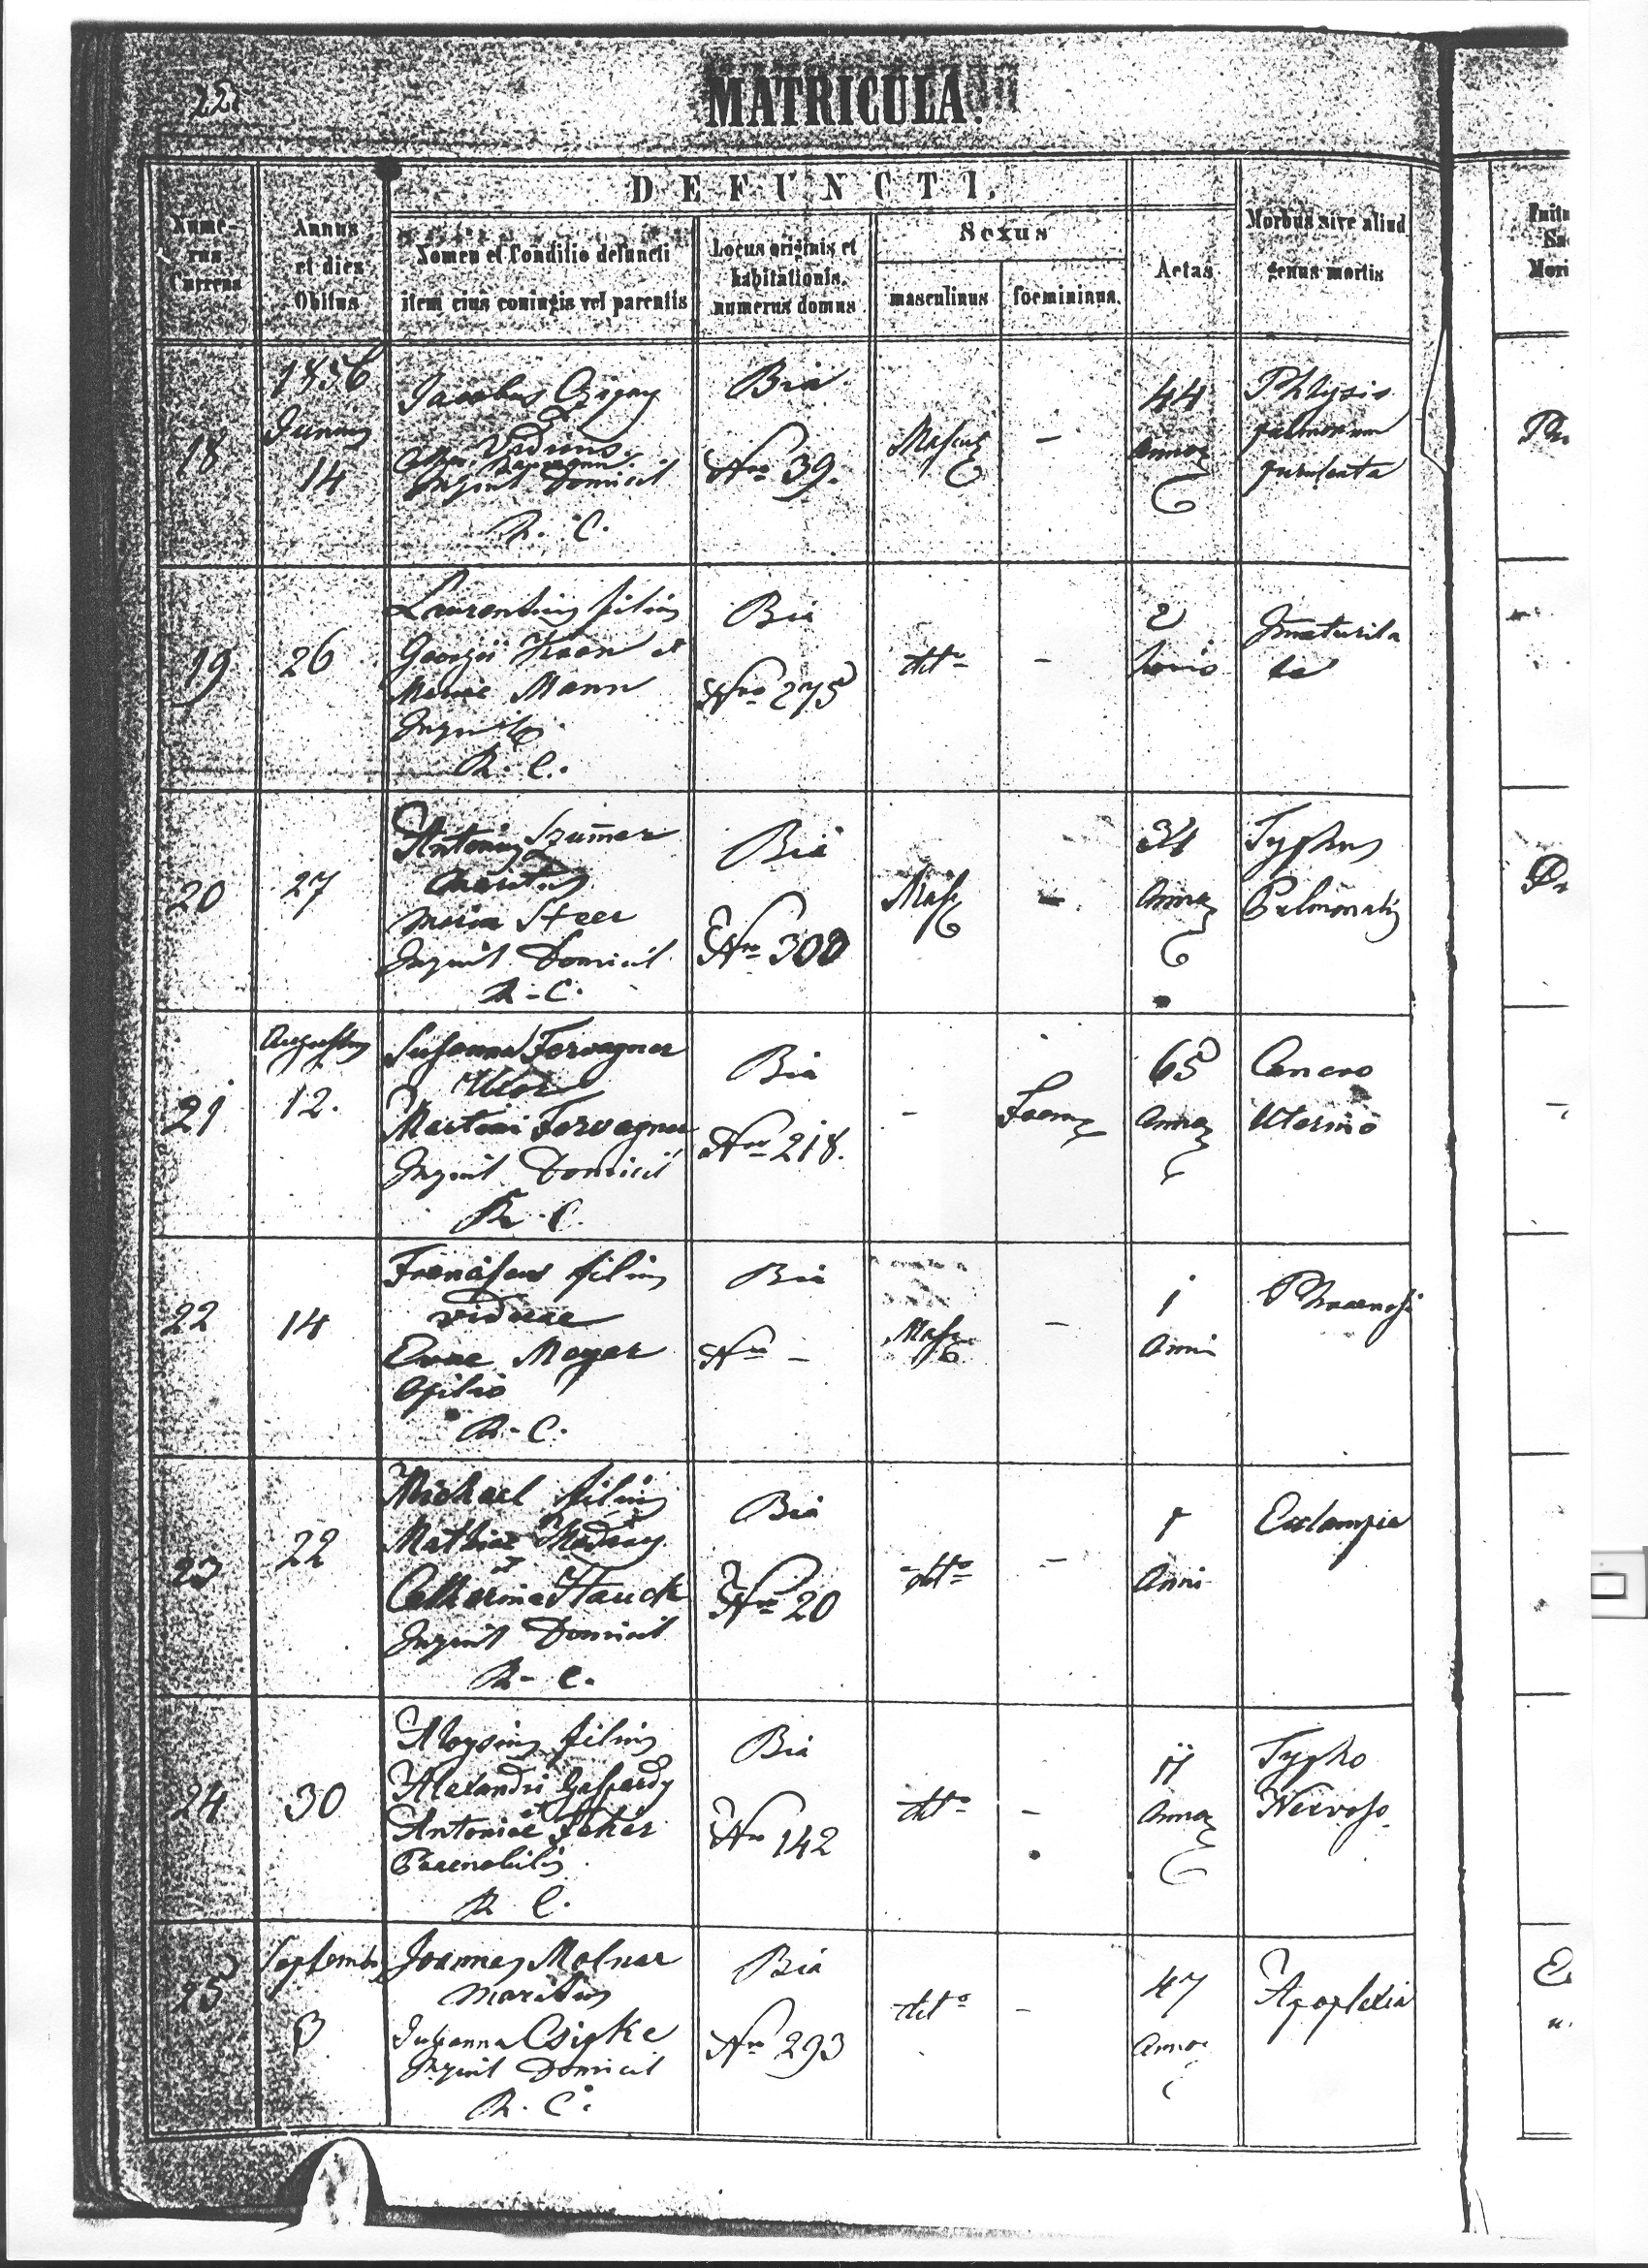 22
MATRICULA.
DEFUNCTI.
Nume-
rus
Currens
Annus
et dies
Obitus
Nomen et Conditio defuncti
item eius coniugis vel parentis
Locus originis et
habitationis,
numerus domus
Sexus
masculinus
foemininus.
Aetas
Morbus sive aliud
genus mortis
18
1856
Junius
14
Jacobus
Viduus
Inquil Domicil
R. C.
Bia
Nro 39.
Mascu
—
44
Annor
Phtysis
pulmonum
purulenta
19
26
Laurentius filius
Georgii Kaan et
Mariae Mann
R. C.
Bia
Nro 275
dtto
—
2
horis
20
27
Antonius Szumer
Maritus
Maria Steer
Inquil Domicil
R. C.
Bia
Nro 300
Masc
—
34
Annor
Typhus
Pulmonalis
21
Augustus
12.
Susanna Forvagner
Uxor
Martini Forvagner
Inquil Domicil
R. C.
Bia
Nro 218.
-
Foem
65
Annor
Cancro
Uterino
22
14
Franciscus filius
viduae
Evae Mayer
Opilio
R. C.
Bia
Nro —
Masc
—
1
Anni
23
22
Michael filius
Mathiae
et
Catharinae Hauck
Inquil Domicil
R. C.
Bia
Nro 20
dtto
—
1
Anni
Eclampsia
24
30
Aloysius filius
Alexandri Gaspardy
et
Antoniae Feher
Praenobilis
R. C.
Bia
Nro 142
dtto
—
11
Annor
Typho
Nervoso
25
September
3
Joannes Molnar
Maritus
Julianna Csipke
Inquil Domicil
R. C.
Bia
Nro 293
dtto
—
47
Annor
Apoplexia